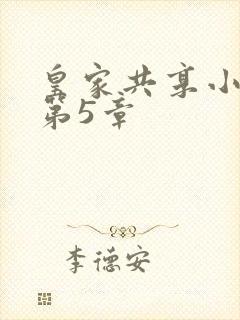 皇家共享小
第5章
李德安